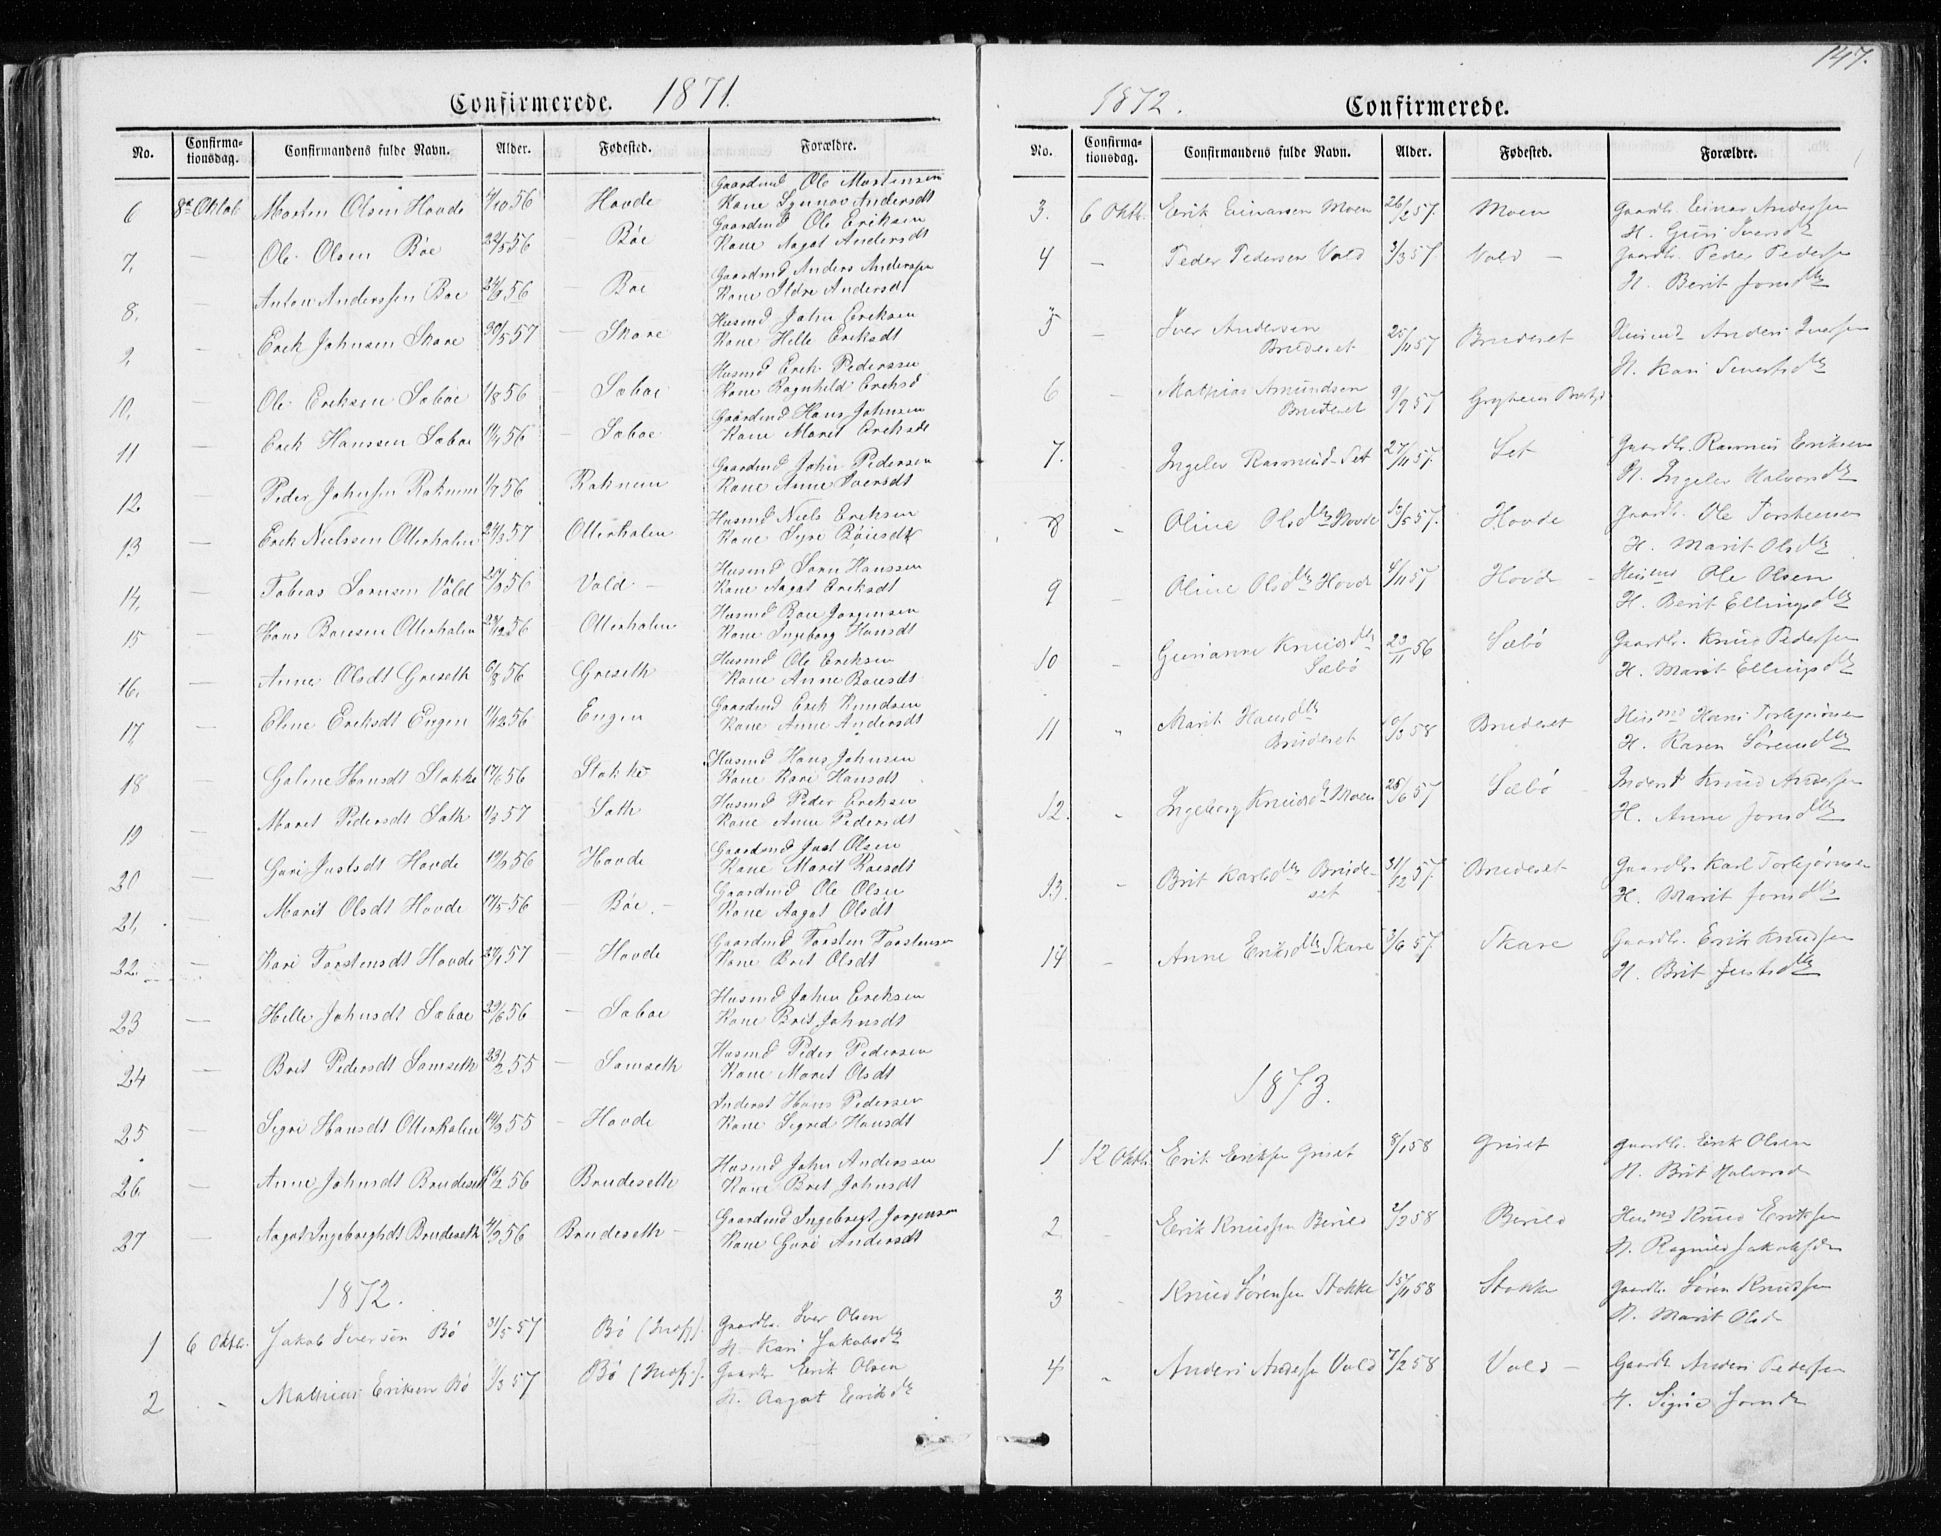 Confirmerede. 1871.
No. Confirmationsdag. Confirmandens fulde Navn. Alder. Fødested. Forældre.
6 8de Oktob Morten Olsen Hovde 4/10 56 Hovde Gaardmd Ole Mortensen
Kone Synnøv Andersdt
7, — Ole Olsen Bøe 56 — Bøe Gaardmd Ole Eriksen
Kone Aagot Andersdt
8. — Anton Anderssen Boe 56 — Boe Gaardmd Anders Anderssen
Kone Ildre Andersdt
9, — Erik Johnsen Skare 30/5 57 — Skare Husmd John Eriksen
Kone Helle Eriksdt
10. — Ole Eriksen Sæboe 1/8 56 — Sæboe Husmd Erik Pederssen
Kone Ragnhild Eriksd
11 — Erik Hanssen Sæboe 56 — Sæboe Gaardmd Hans Johnsen
Kone Marit Eriksdt
12 — Peder Johnsen Raknem 56 Raknem Gaardmd John Pedersen
Kone Anne Iversdt
13 — Erik Nielssen Otterholen 57 Otterholen Husmd Niels Eriksen
Kone Syre
14, — Tobias Sørnsen Vold 56 Vold — Husmd Sørn Hanssen
Kone Aagot Eriksdt
15 — Hans Bonsen Otterholen 56 Otterholen Husmd Bone Jorgensen
Kone Ingeborg Hansdt
16. — Anne Olsdt Griseth 6/8 56 Griseth Husmd Ole Eriksen
Kone Anne Bonsdt
17, — Oline Eriksdt Engen 56 Engen Gaardmd Erik Knudsen
Kone Anne Andersdt
18 — Goline Hansdt Stokke 17/6 56 Stokke Husmd Hans Johnsen
Kone Kari Hansdt
19 — Marit Pedersdt Sath 57 Sath Husmd Peder Eriksen
Kone Anne Pedersdt
20 — Guri Justsdt Hovde 56 Hovde Gaardmd Just Olsen
Kone Marit
21, — Marit Olsdt Hovde 17/5 56 — Bøe. — Gaardmd Ole Olsen
Kone Aagot Olsdt
22. — Kari Torstensdt Hovde 57 — Hovde Gaardmd Torsten Torstensen
Kone Brit Olsdt
23 — Helle Johnsdt Sæboe 29/6 56 — Sæboe Husmd John Eriksen
Kone Brit Johnsdt
24 — Brit Pedersdt Samseth 23/2 55 — Samseth Husmd Peder Pedersen
Kone Marit Olsdt
25 — Sigri Hansdt Otterholen 55 — Hovde Inderst Hans Pedersen
Kone Sigrid Hansdt
26 — Anne Johnsdt Brudeseth 56 Brudeseth Husmd John Anderssen
Kone Brit Johnsdt
27 — Aagot Ingebregtdt Brudeseth 56 Brudeseth — Gaardmd Ingebregt Jorgensen
Kone Guri Andersdt
1872.
1 6 Oktb. Jakob Iversen Bø 31/5 57 Bø Gaardbr. Iver Olsen
H. Kari Jakobsdtr
2 " Mathias Eriksen Bø 1/3 57 Bø Gaardbr Erik Olsen
H. Aagot Eriksdtr
147.
1872. Confirmerede.
No. Confirmationsdag. Confirmandens fulde Navn. Alder. Fødested. Forældre.
3. 6 Oktb. Erik Einarsen Moen 26/2 57. Moen Gaardbr. Einar Andersen
H. Guri Iversdtr
4 — Peder Pedersen Vold 3/3 57. Vold — Gaardbr. Peder Pedersen
H. Berit Jonsdtr
5 — Iver Andersen
Bruderet 25/11 57 Bruderet Husmd Anders Iversen
H. Kari Sivertsdtr
6 " Mathias Amundsen
Bruderet 9/9 57
7. " Ingeler Rasmusd. Set 27/11 57. Set Gaardbr. Rasmus Eriksen
H. Ingeler Halvorsdtr
8 " Oline Olsdtr Hovde 57. Hovde Gaardbr. Ole Torstensen
H. Marit Olsdtr
9 — Oline Olsdtr Hovde 4/11 57 Hovde — Husmd Ole Olsen
H. Berit Ellingsdtr
10 " Gurianne Knudsdtr
Sæbø 23/11 56 Sæbø Gaardbr. Knud Pedersen
H. Marit Ellingsdtr
11 " Marit Hansdtr
Bruderet 58 Bruderet Husmd Hans Torbjørnsen
H. Karen Sørensdtr
12. " Ingeborg Knudsdtr Moen 28/6 57 Sæbø — Inderst Knud Andersen
H. Anne Jonsdtr
13. " Brit Karlsdtr Brude-
set 31/12 57. Bruderet Gaardbr. Karl Torbjørnsen
H. Marit Jonsdtr
14 — Anne Eriksdtr Skare 3/6 57. Skare Gaardbr. Erik Knudsen
H. Brit Justsdtr
1873.
1 12 Oktb. Erik Eriksen Griset 8/1 58 Griset Gaardbr. Erik Olsen
H. Brit Halvorsd
2 " Erik Knudsen Berild 2/2 58 Berild Husmd Knud Eriksen
H. Ragnild Jakobsdtr
3 " Knud Sørensen Stokke 15/11 58 Stokke Gaardbr. Søren Knudsen
H. Marit Olsd
4 " Anders Andersen Vold 7/2 58 Vold — Gaardbr Anders Pedersen
H. Signe Jonsdtr